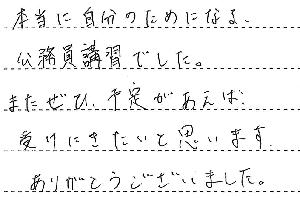 本当に自分のためになる、
公務員講習でした。
またぜひ、予定があえば
受けにきたいと思います。
ありがとうございました。